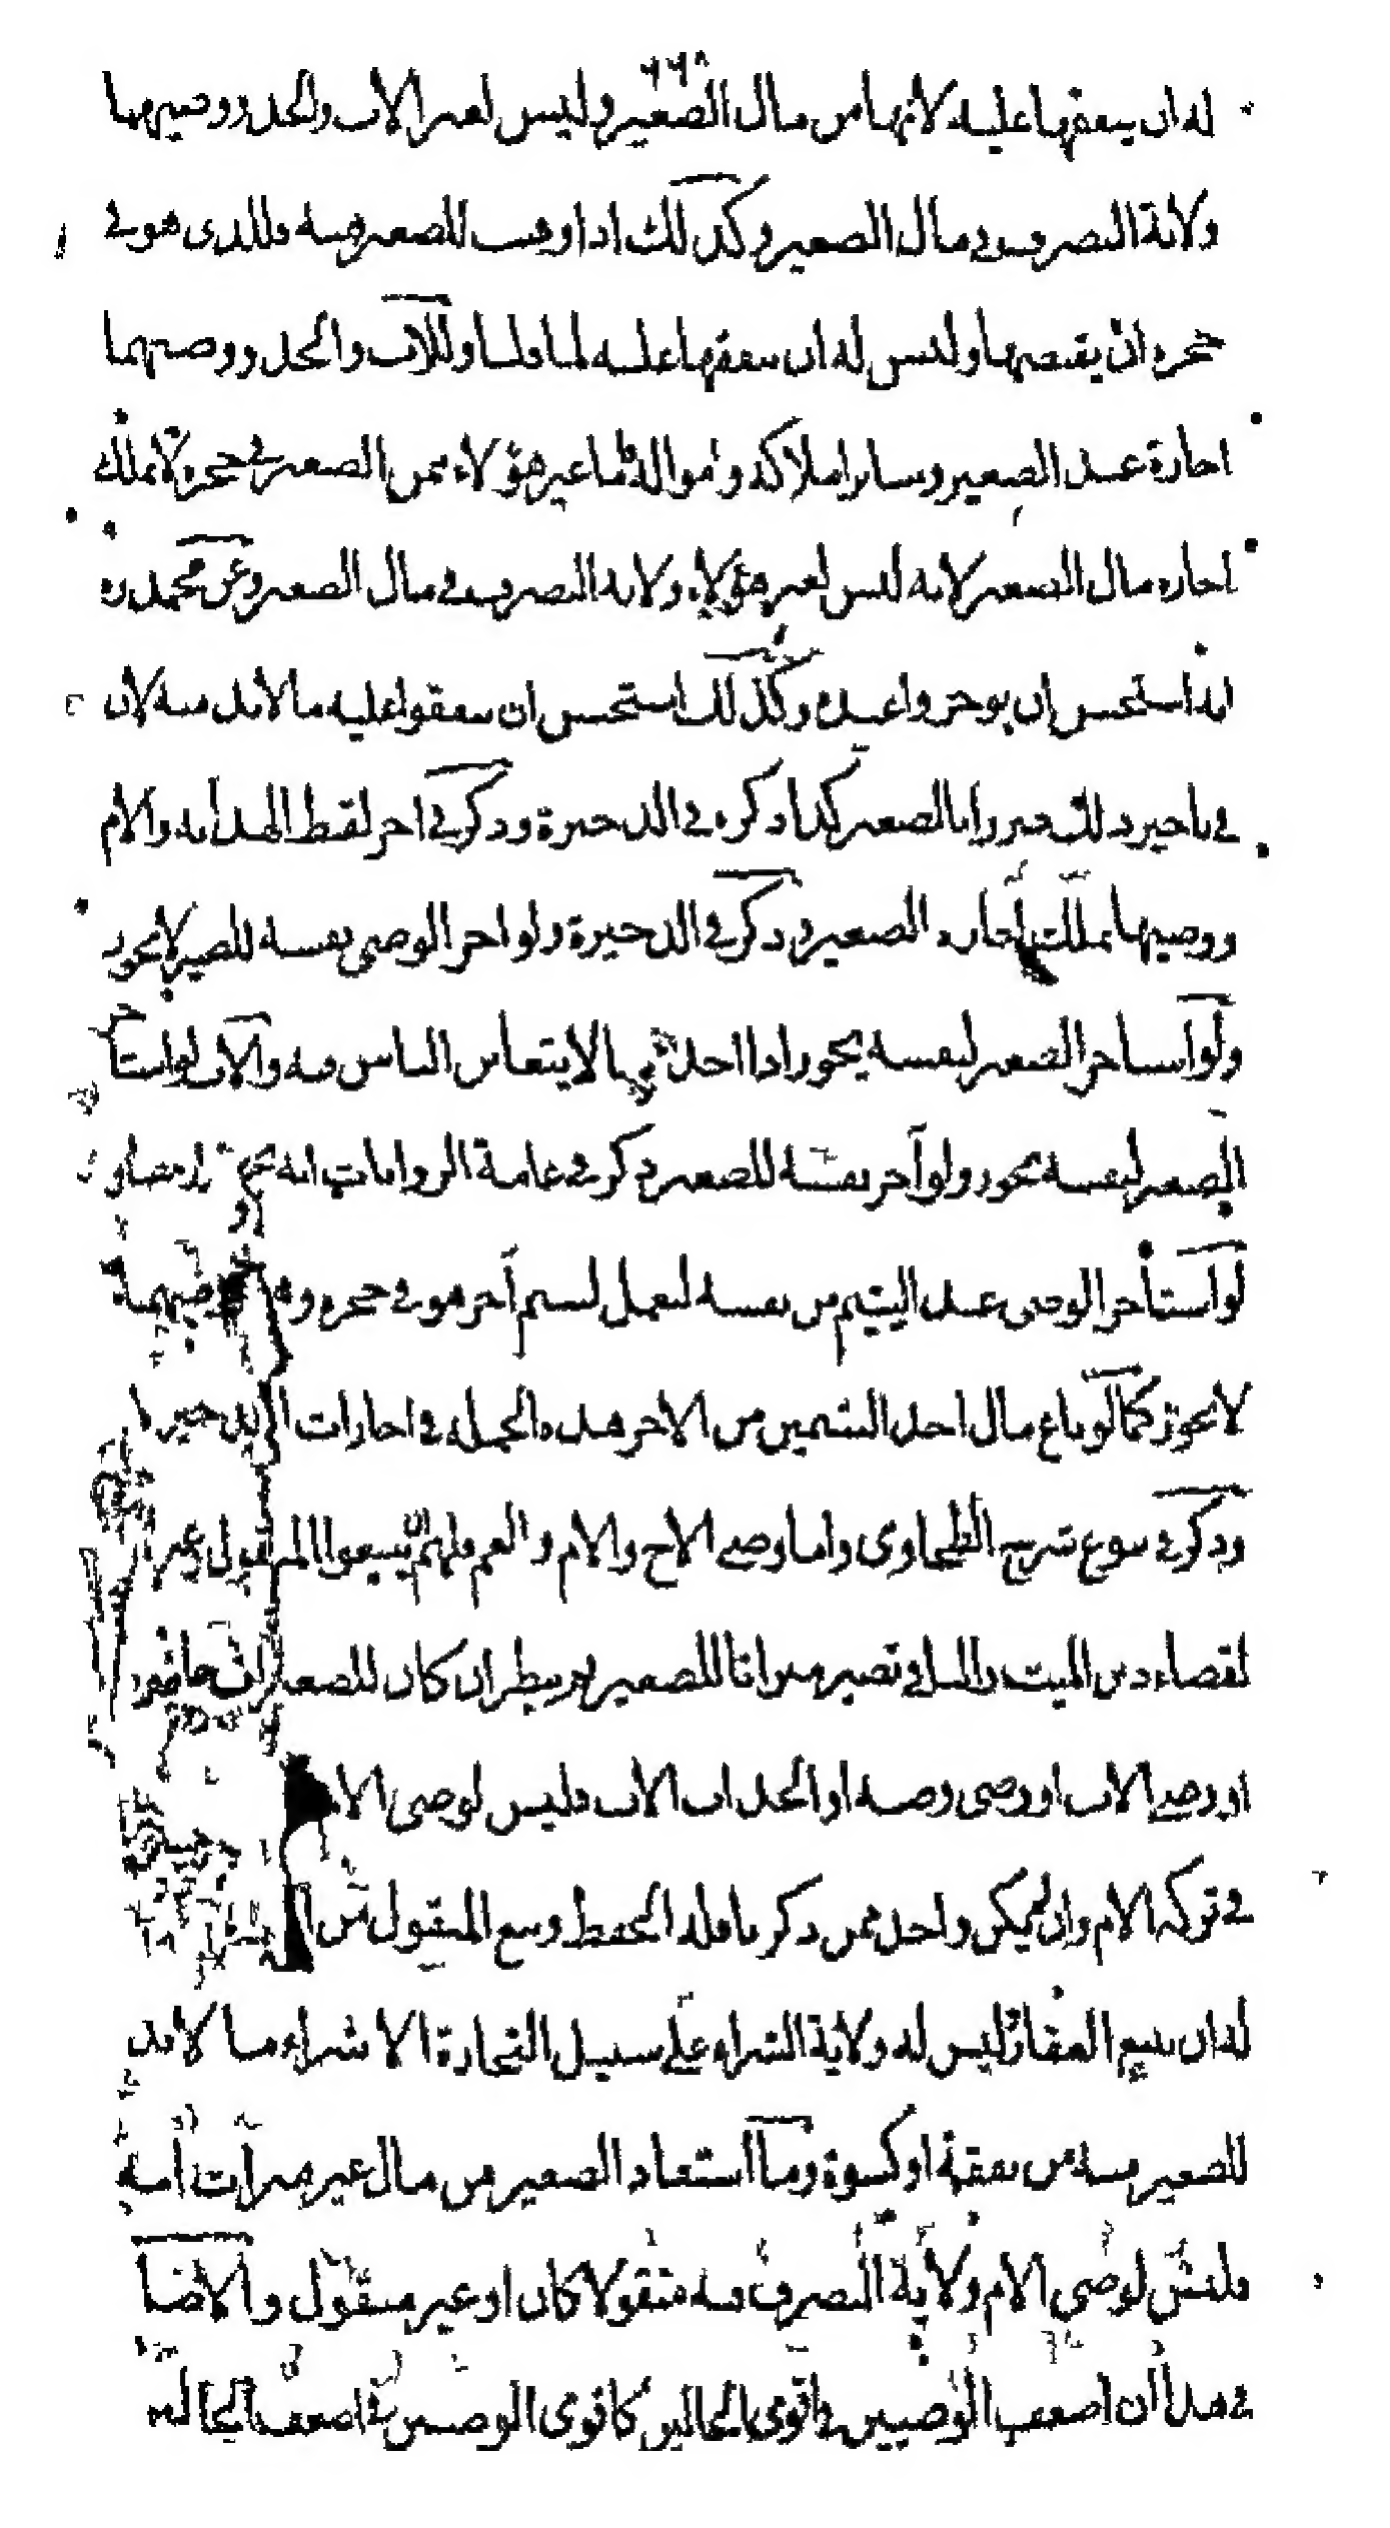 ٢٢٨
له ان ينفقها عليه لانها من مال الصغير وليس لغير الاب والجد ووصيهما
ولاية التصرف في مال الصغير وكذلك اذا وهب للصغير هبة فللذى هو في
حجره ان يقبضها وليس له ان ينفقها عليه لما قلنا وللاب والجد ووصيهما
اجارة عبد الصغير وساير املاكه وامواله فاما غير هؤلاء ممن الصغير في حجره لا يملك
اجارة مال الصغير لانه ليس لغير هؤلاء ولاية التصرف في مال الصغير وعن محمد ره
انه استحسن ان يوجروا عبده وكذلك استحسن ان ينفقوا عليه ما لا بد منه لان
في تاخير ذلك ضررا بالصغير كذا ذكره في الذخيرة وذكر في اجر لقيط الهداية والام
ووصيها تملك اجارة الصغير وذكر في الذخيرة ولو اجر الوصى نفسه للصغير لا يجوز
ولو استاجر الصغير لنفسه يجوز اذا اخذ بما لا يتغابن الناس فيه والاب لو استأ
الصغير لنفسه يجوز ولو آجر نفسه للصغير ذكر في عامة الروايات انه يجوز
لو استأجر الوصى عبد اليتيم من نفسه ليعمل ليتيم آخر هو في حجره وهو وصيهما
لا يجوز كما لو باع مال احد اليتيمين من الاخر هذه الجملة في اجارات الذخيرة
وذكر في بيوع شرح الطحاوى واما وصى الاخ والام والعم فلهم ان يبيعوا المنقول وغيره
لقضاء دين الميت والباقى يصير ميراثا للصغير ثم ينظر ان كان للصغير اب حاضر
او وصى الاب او وصى وصيه او الجد اب الاب فليس لوصى الام
في تركه الام وان لم يكن واحد ممن ذكرنا فله الحفظ وبيع المنقول من
له ان يبيع العقار وليس له ولاية الشراء على سبيل التجارة الا شراء ما لا بد
للصغير منه من نفقة او كسوة وما استفاد الصغير من مال غير ميراث امه
فليس لوصى الام ولاية التصرف فيه منقولا كان او غير منقول والاصل
في هذا ان اضعف الوصيين في اقوى الحالين كاقوى الوصيين في اضعف الحالين